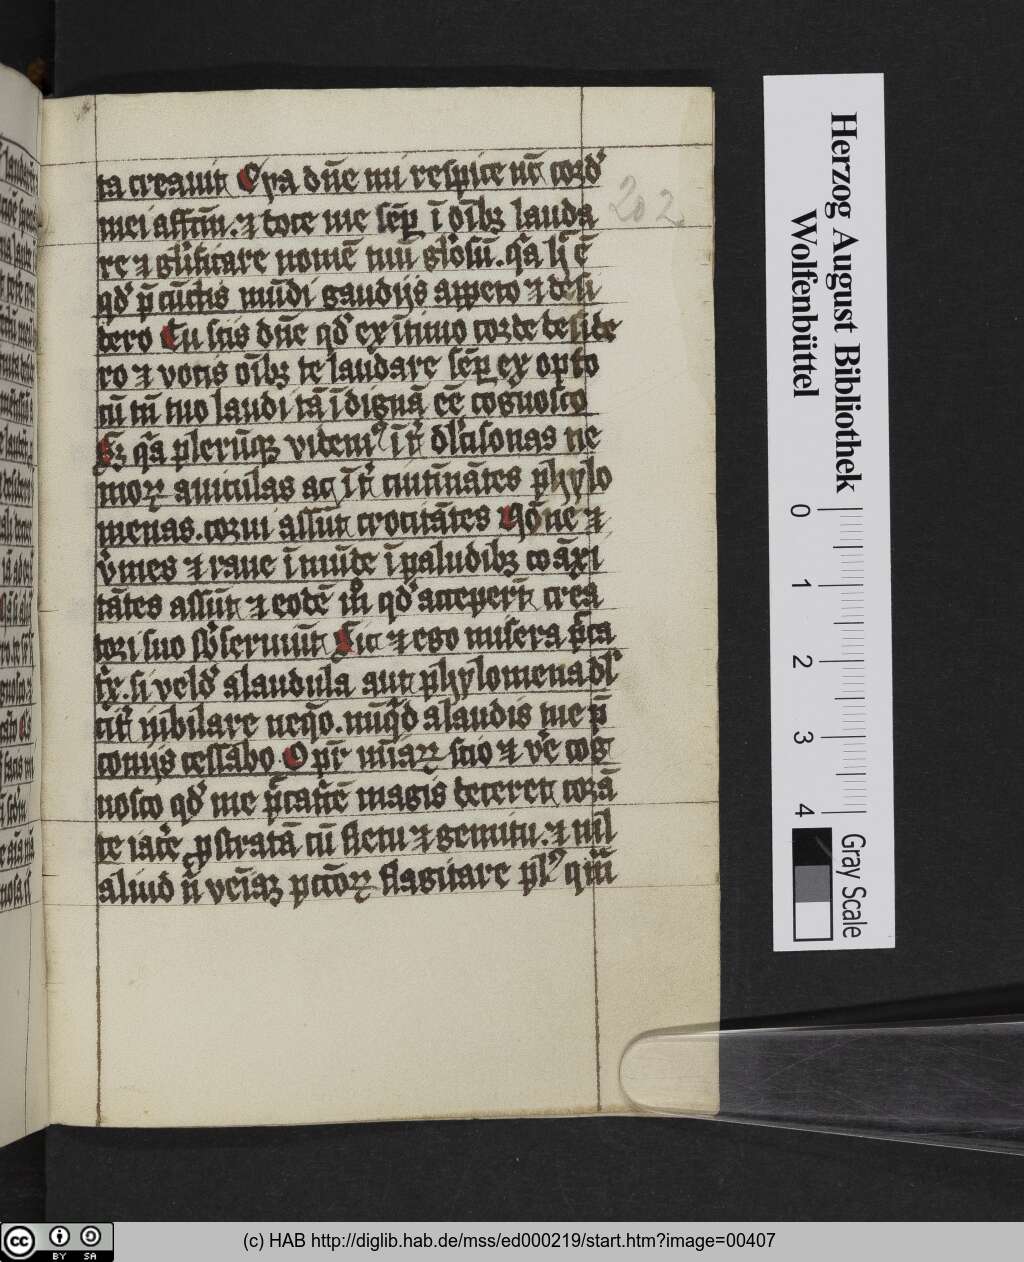 ta creauit Eya dn̄e mi respice nc̄ cord᷒
mei affctū. ⁊ doce me sēp ī oīb₃ lauda
re ⁊ gl̄ificare nomē tuū gl̄osū. q̄a h̄ ē
qd̓ p̄ cūctis mūdi gaudijs appeto ⁊ desi
dero Tu scis dn̄e qd̓ ex ītimo corde deside
ro ⁊ votis oīb₃ te laudare sēp ex opto
cū tn̄ tuo laudi tā īdignā eē cognosco
S₃ q̄a plerūq₃ videm᷒ īt̄ dl̄cisonas ne
moꝝ auiculas ac īt̄ ciutinātes phylo
menas. corui assūt crocitātes Nōne ⁊
v̓mes ⁊ rane īmūde ī paludib₃ coāxi
tātes assūt ⁊ eodē m̊ qd̓ acceper̄t crea
tori suo sb̓seruiūt Sic ⁊ ego misera p̄ca
t̓x. si veld̓ alaudula aut phylomena dl̓
cit̓ iubilare neq̄o. nūq̄d alaudis me p̄
conijs cessabo O pr̄ mīaꝝ scio ⁊ v̓e cog
nosco qd̓ me p̄cat̓cē magis deceret corā
te iac̓e ꝓstratā cū fletu ⁊ gemitu. ⁊ nīl
aliud n̄ veīa₃ pctōꝝ flagitare pl᷒ qm̄
202
Herzog August Bibliothek
Wolfenbüttel
0 1 2 3 4
Gray Scale
cc BY SA
(c) HAB http://diglib.hab.de/mss/ed000219/start.htm?image=00407